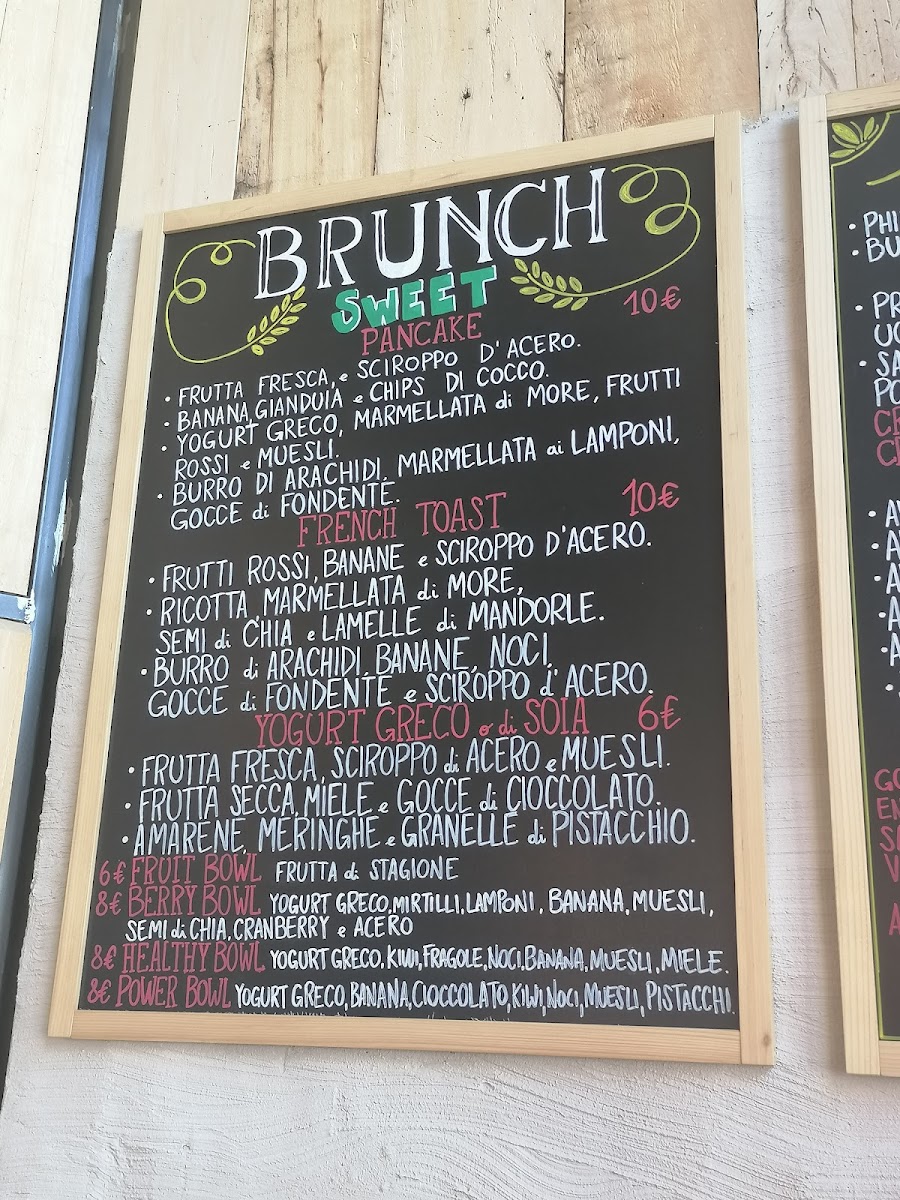 BRUNCH
SWEET
PANCAKE 10€
• FRUTTA FRESCA, e SCIROPPO D'ACERO.
• BANANA, GIANDUIA e CHIPS DI COCCO.
• YOGURT GRECO, MARMELLATA di MORE, FRUTTI
ROSSI e MUESLI.
• BURRO DI ARACHIDI, MARMELLATA ai LAMPONI,
GOCCE di FONDENTE.
FRENCH TOAST 10€
• FRUTTI ROSSI, BANANE e SCIROPPO D'ACERO.
• RICOTTA, MARMELLATA di MORE,
SEMI di CHIA e LAMELLE di MANDORLE.
• BURRO di ARACHIDI, BANANE, NOCI,
GOCCE di FONDENTE e SCIROPPO d'ACERO.
YOGURT GRECO o di SOIA 6€
• FRUTTA FRESCA, SCIROPPO di ACERO e MUESLI.
• FRUTTA SECCA, MIELE e GOCCE di CIOCCOLATO.
• AMARENE, MERINGHE e GRANELLE di PISTACCHIO.
6€ FRUIT BOWL FRUTTA di STAGIONE
8€ BERRY BOWL YOGURT GRECO, MIRTILLI, LAMPONI, BANANA, MUESLI,
SEMI di CHIA, CRANBERRY e ACERO
8€ HEALTHY BOWL YOGURT GRECO, KIWI, FRAGOLE, NOCI, BANANA, MUESLI, MIELE.
8€ POWER BOWL YOGURT GRECO, BANANA, CIOCCOLATO, KIWI, NOCI, MUESLI, PISTACCHI.